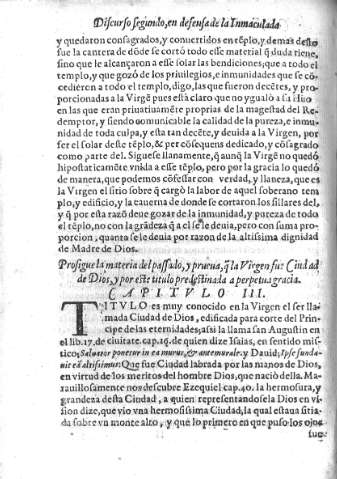 Discurso segundo, en defensa de la Inmaculada
y quedaron consagrados, y conuertidos en tẽplo, y demas desto
fue la cantera de dõde se cortò todo esse material q̃ duda tiene,
sino que le alcançaron a esse solar las bendiciones, que a todo el
templo, y que gozò de los priuilegios, e inmunidades que se cõ-
cedieron a todo el templo, digo, las que fueron decẽtes, y pro-
porcionadas a la Virgẽ pues està claro que no ygualò a su hijo
en las que eran priuatiuamẽte proprias de la magestad del Re-
demptor, y siendo comunicable la calidad de la pureza, e inmu-
nidad de toda culpa, y esta tan decẽte, y deuida a la Virgen, por
ser el solar deste tẽplo, & per cõsequens dedicado, y cõsagrado
como parte del. Siguese llanamente, q̃ aunq̃ la Virgẽ no quedò
hipostaticamẽte vnida a esse tẽplo, pero por la gracia lo quedò
de manera, que podemos cõfessar con verdad, y llaneza, que es
la Virgen el sitio sobre q̃ cargò la labor de aquel soberano tem
plo, y edificio, y la cauerna do donde se cortaron los sillares del,
y q̃ por esta razõ deue gozar de la inmunidad, y pureza de todo
el tẽplo, no con la grãdeza q̃ a el se le deuia, pero con suma pro-
porcion, quanto se le deuia por razon de la altissima dignidad
de Madre de Dios.
Prosigue la materia del passado, y prueua, q̃ la Virgen fue Ciudad
de Dios, y por este titulo predestinada a perpetua gracia.
CAPITVLO III.
TITVLO es muy conocido en la Virgen el ser lla-
mada Ciudad de Dios, edificada para corte del Prin-
cipe de las eternidades, assi la llama san Augustin en
el lib. 17. de ciuitate cap. 16. de quien dize Isaias, en sentido mis-
tico; Saluator ponetur in ea murus, & antemurale: y Dauid; Ipse funda-
uit eã altissimus. Que fue Ciudad labrada por las manos de Dios,
en virtud de los meritos del hombre Dios, que naciò della. Ma-
rauillosamente nos descubre Ezequiel cap. 40. la hermosura, y
grandeza desta Ciudad, a quien representandosela Dios en vi-
sion dize, que vio vna hermosissima Ciudad, la qual estaua sitia-
da sobre vn monte alto, y que lo primero en que puso los ojos
fue